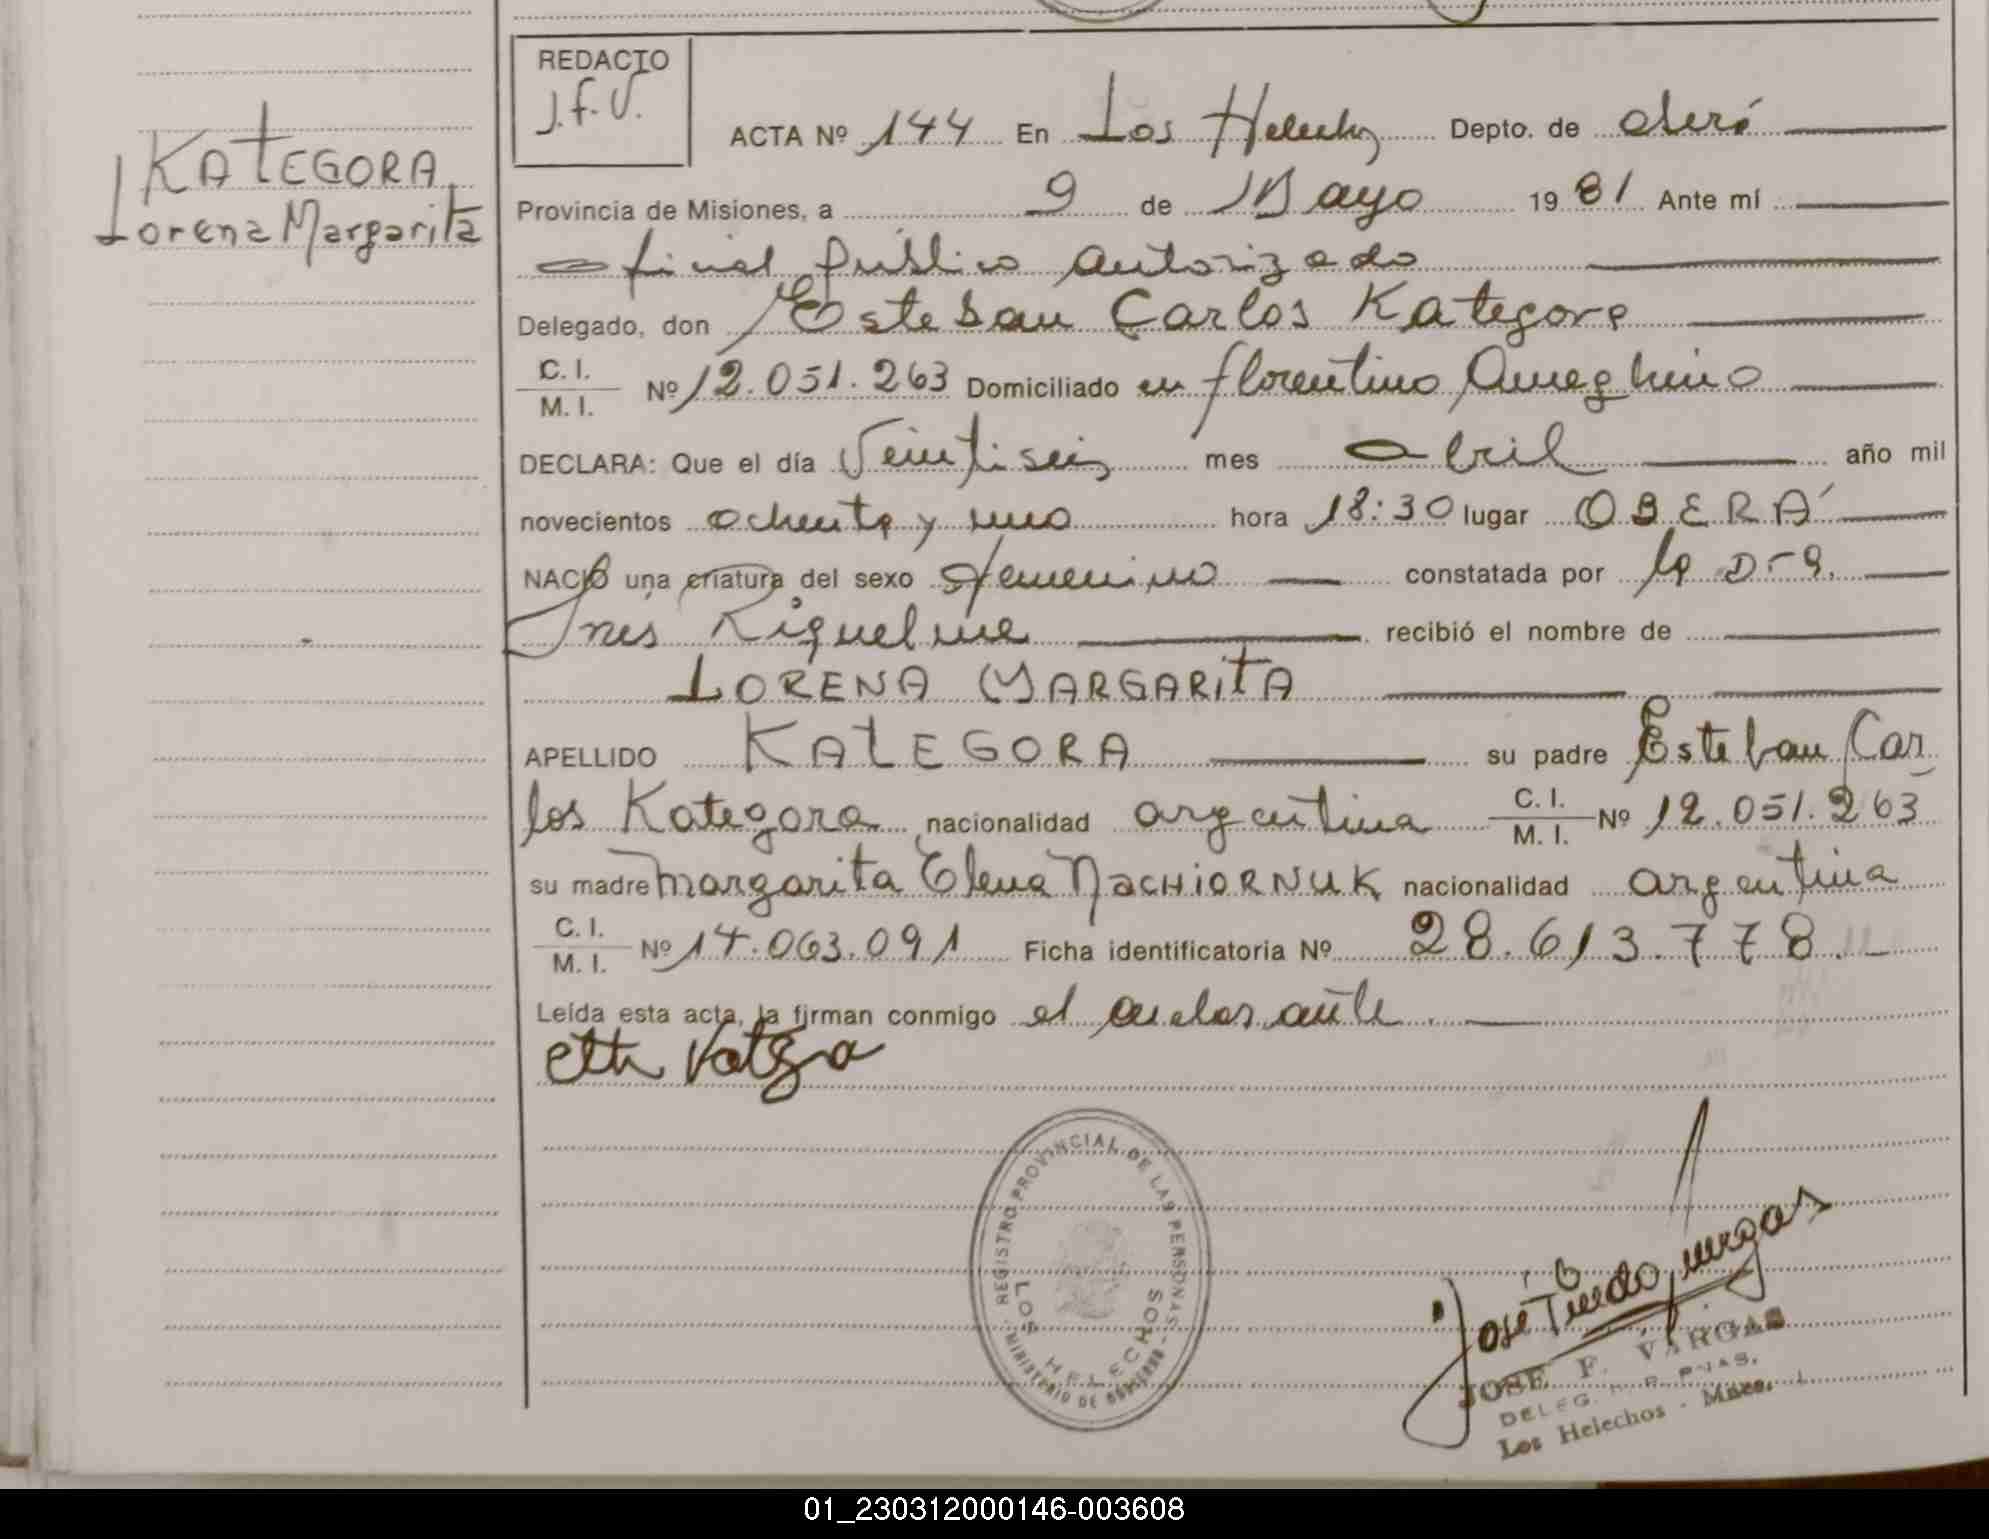 REDACTO
J.F.V.
KATEGORA
Lorena Margarita
ACTA Nº 144 En Los Helechos Depto. de Oberá
Provincia de Misiones, a 9 de Mayo 1981 Ante mí
oficial público autorizado
Delegado, don Esteban Carlos Kategora
C. I.
M. I. Nº 12.051.263 Domiciliado en florentino Ameghino
DECLARA: Que el día Veintiseis mes abril año mil
novecientos ochenta y uno hora 18:30 lugar OBERÁ
NACIÓ una criatura del sexo femenino constatada por la Dra.
Ines Riquelme recibió el nombre de
LORENA MARGARITA
APELLIDO KATEGORA su padre Esteban Car
los Kategora nacionalidad argentina C. I.
M. I. Nº 12.051.263
su madre Margarita Elena NACHIORNUK nacionalidad argentina
C. I.
M. I. Nº 14.063.091 Ficha identificatoria Nº 28.613.778.
Leída esta acta, la firman conmigo el declarante.
REGISTRO PROVINCIAL DE LAS PERSONAS
LOS HELECHOS
MINISTERIO DE GOBIERNO
José Vargas
JOSE F. VARGAS
DELEG. R. P. PNAS.
Los Helechos - Mnes.
01_230312000146-003608